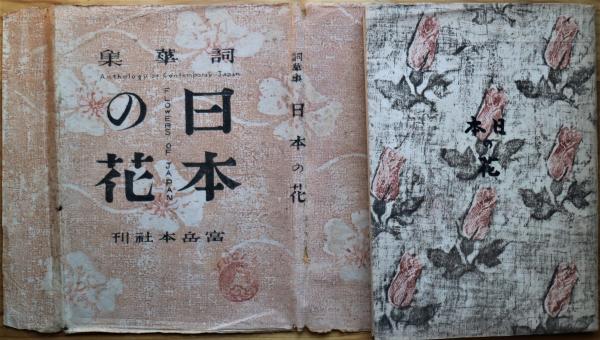 詞華集
Anthology of Contemporary Japan
日本
の花
FLOWER OF JAPAN
富岳本社刊
詞華集 日本の花
日本の花